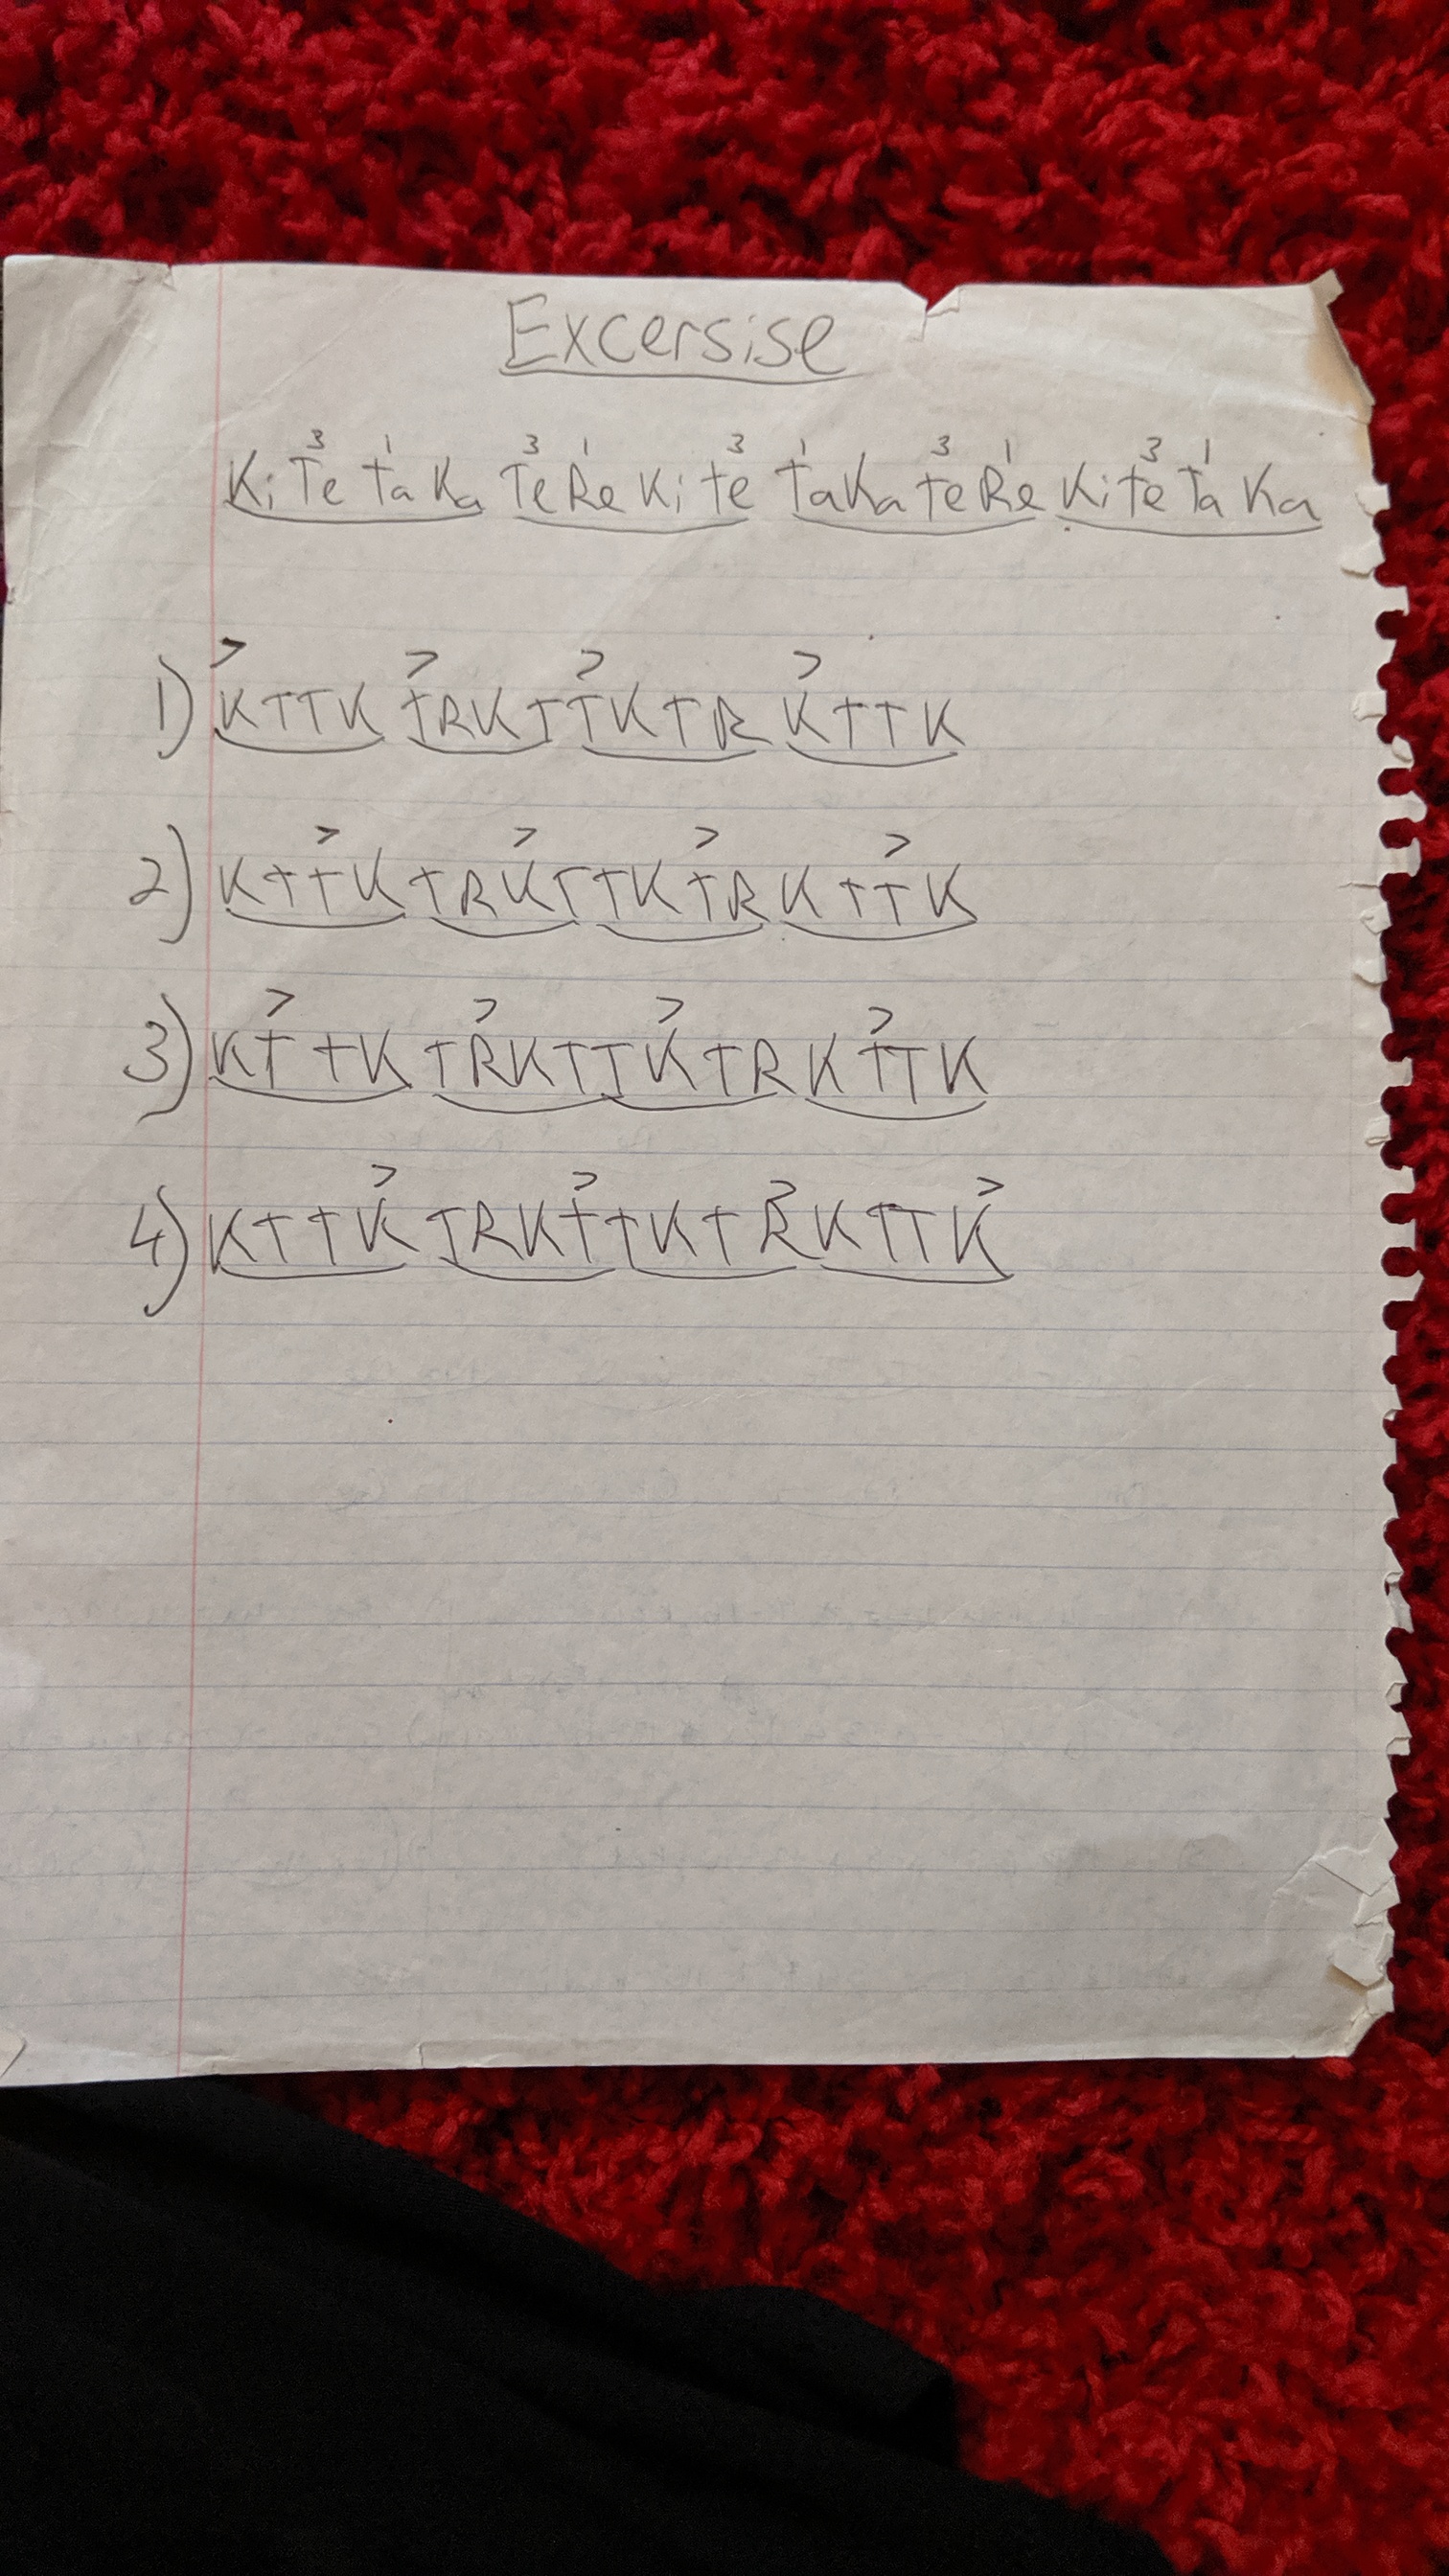 Excersise
3 1 3 1 3 1 3 1 3 1
Ki Te Ta Ka Te Re Ki te TaKa teRe Ki te Ta Ka
> > > >
1) KTTK TRKT TKTR KTTK
> > > >
2) KTTK TRKT TKTR KTTK
> > > >
3) KTTK TRKT TKTR KTTK
> > > >
4) KTTK TRKT TKTR KTTK